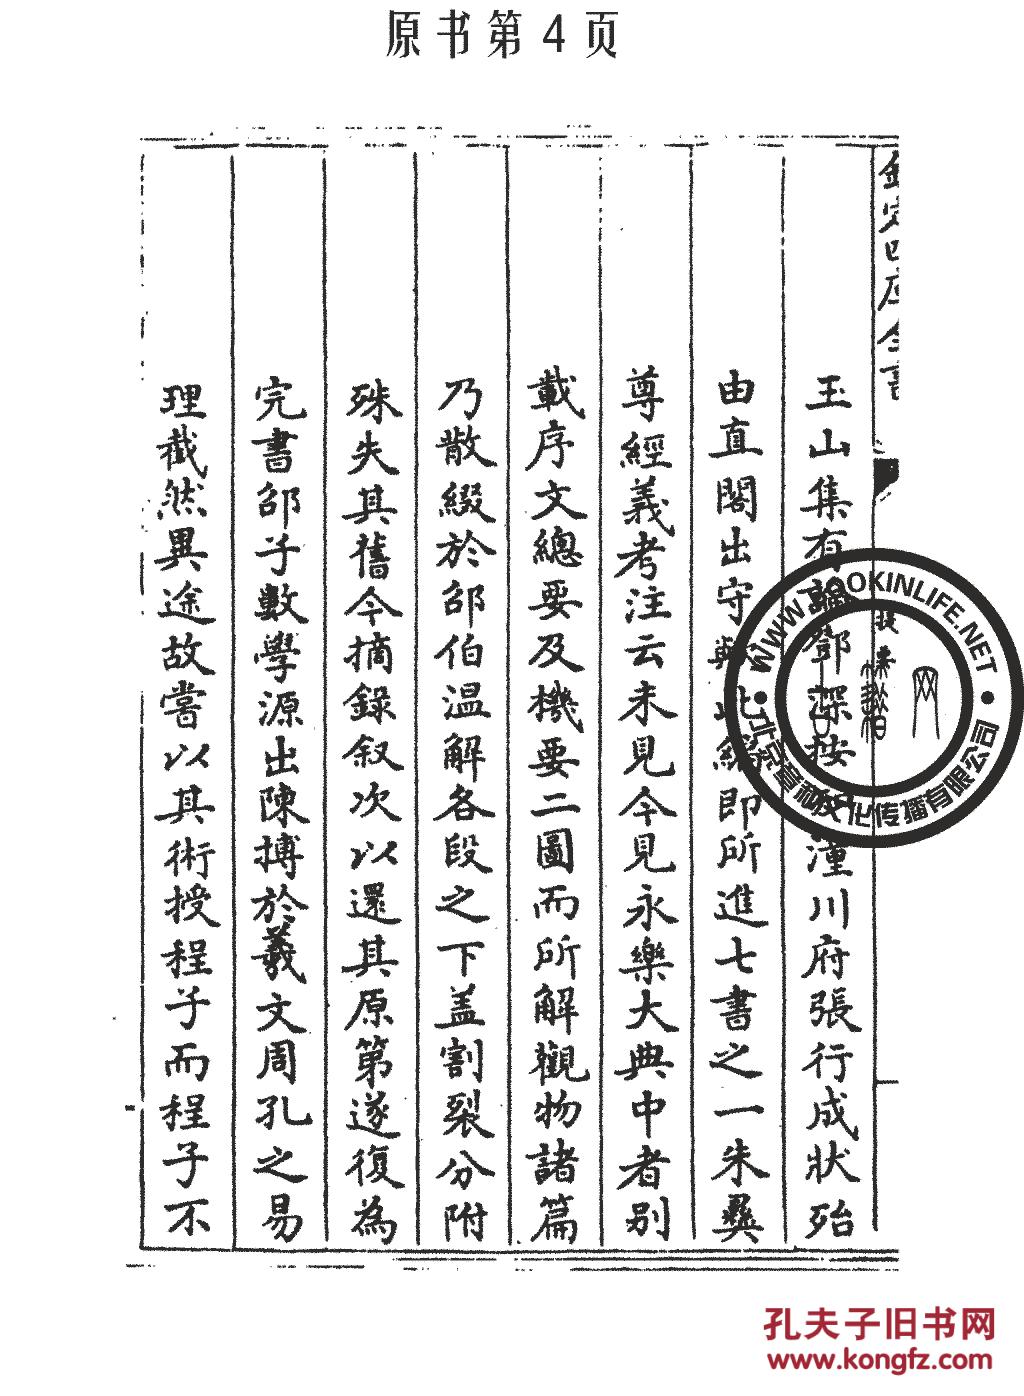 原书第4页
欽定四庫全書
玉山集有論鄧深按潼川府張行成狀殆
由直閣出守與此編即所進七書之一朱彝
尊經義考注云未見今見永樂大典中者別
載序文總要及機要二圖而所解觀物諸篇
乃散綴於邵伯温解各段之下盖割裂分附
殊失其舊今摘錄叙次以還其原第遂復為
完書邵子數學源出陳摶於羲文周孔之易
理截然異途故嘗以其術授程子而程子不
WWW.BOOKINLIFE.NET
北京章和文化传播有限公司
孔夫子旧书网
www.kongfz.com